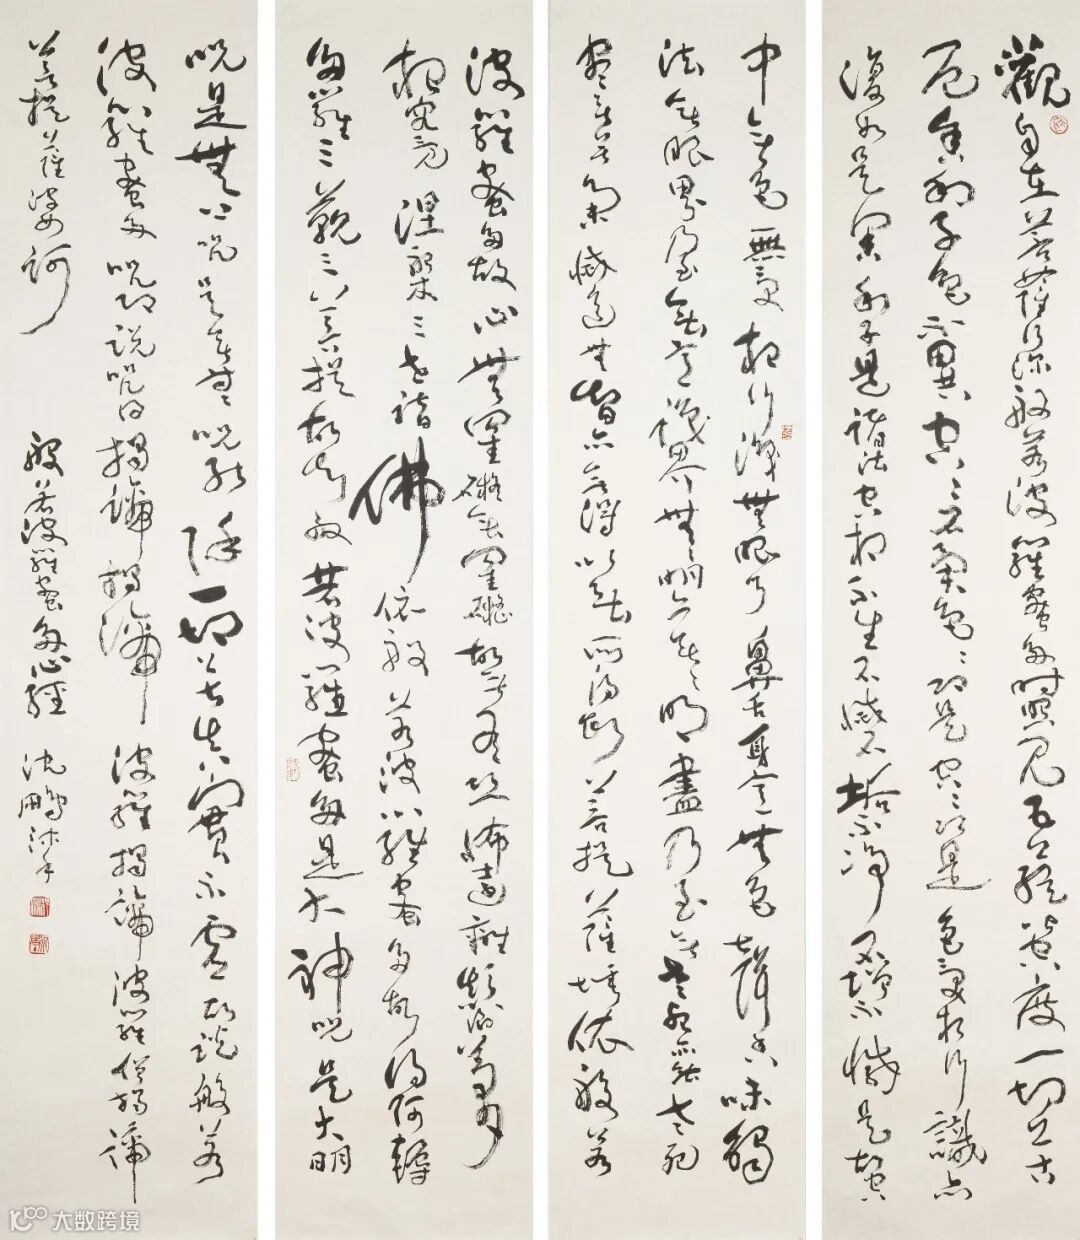 觀自在菩薩行深般若波羅蜜多時照見五蘊皆空度一切苦
厄舍利子色不異空〻不異色〻即是空〻即是色受想行識亦
復如是舍利子是諸法空相不生不滅不垢不淨不增不減是故空
中無色無受想行識無眼耳鼻舌身意無色聲香味觸
法無眼界乃至無意識界無無明亦無〻明盡乃至無老死亦無老死
盡無苦集滅道無智亦無得以無所得故菩提薩埵依般若
波羅蜜多故心無罣礙無罣礙故無有恐怖遠離顛倒夢
想究竟涅槃三世諸佛依般若波羅蜜多故得阿耨
多羅三藐三菩提故知般若波羅蜜多是大神咒是大明
咒是無上咒是無等等咒能除一切苦真實不虛故說般若
波羅蜜多咒即說咒曰揭諦揭諦波羅揭諦波羅僧揭諦
菩提薩婆訶 般若波羅蜜多心經 沈鵬沐手
大数跨境